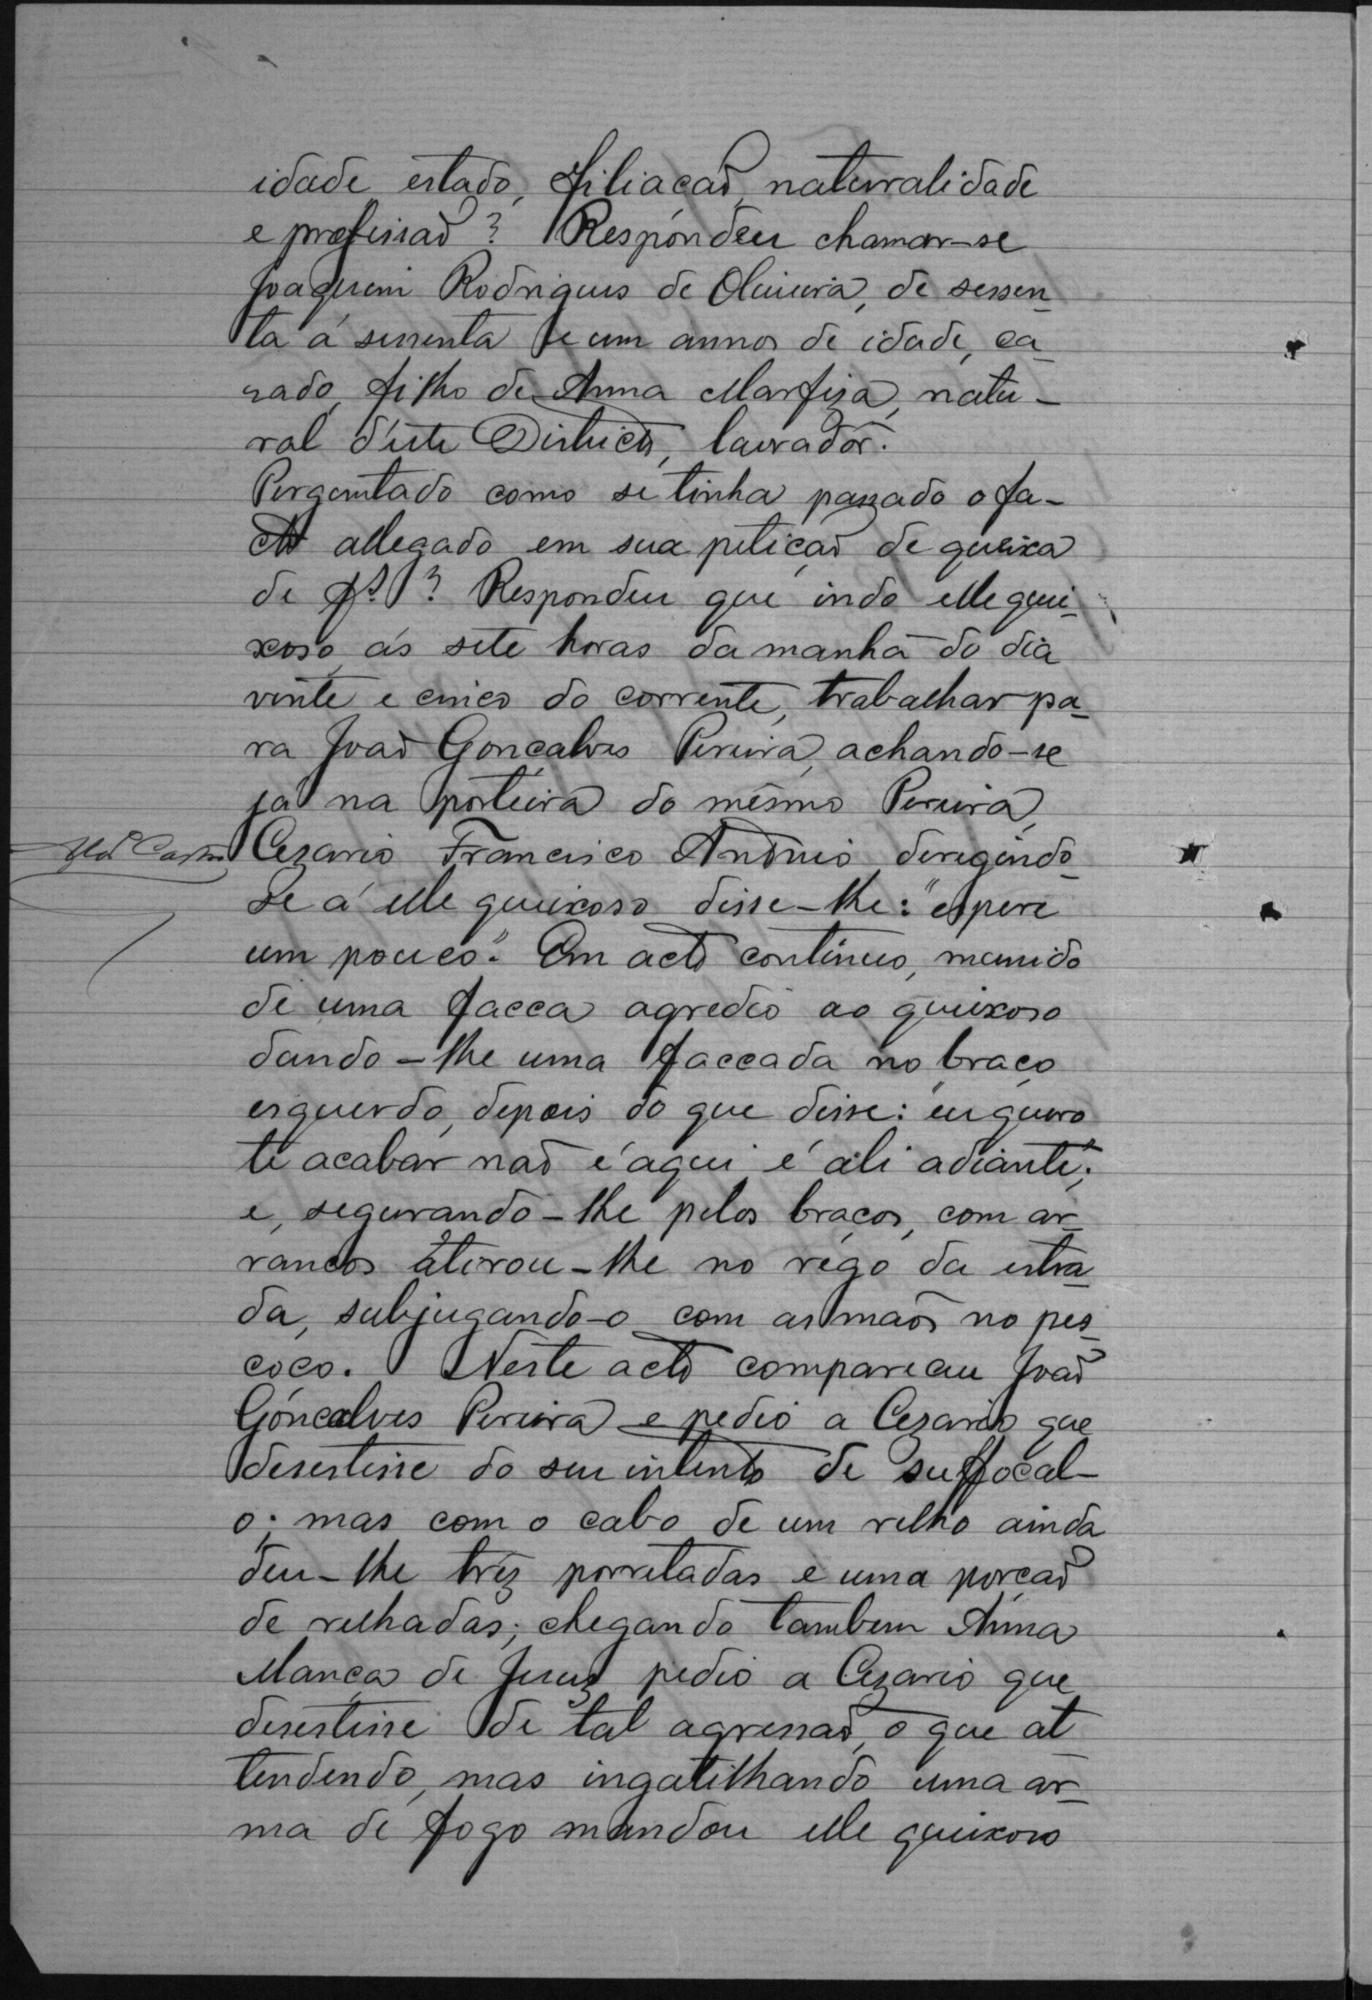 idade estado, filiacaõ, naturalidade
e profissaõ? Respondeu chamar-se
Joaquim Rodrigues de Oliveira, de sessen-
ta á sessenta e um annos de idade, ca-
sado, filho de Anna Marfiza, natu-
ral d'este Districto, lavrador.
Perguntado como se tinha passado o fa-
cto allegado em sua petiçaõ de queixa
de fs? Respondeu que indo elle quei-
xoso ás sete horas da manhã do dia
vinte e cinco do corrente, trabalhar pa-
ra Joaõ Gonçalves Pereira, achando-se
já na porteira do mesmo Pereira,
Cezario Francisco Antonio deregindo-
se á elle queixoso disse-lhe: "espere
um pouco". Em acto continuo, munido
de uma facca agredio ao queixoso
dando-lhe uma faccada no braço
esquerdo, depois do que disse: "eu quero
te acabar naõ é aqui é ali adiante";
e, segurando-lhe pelos braços, com ar-
rancos atirou-lhe no rego da estra-
da, subjugando-o com as maõs no pes-
coço. Neste acto compareceu Joaõ
Gonçalves Pereira e pedio a Cezario que
desestisse do seu intento de suffocal-
o; mas com o cabo de um relho ainda
deu-lhe trez porretadas e uma porçaõ
de relhadas; chegando tambem Anna
Mança de Jesus pedio a Cezario que
desestisse de tal agressaõ, o que at-
tendendo, mas ingatilhando uma ar-
ma de fogo mandou elle queixoso